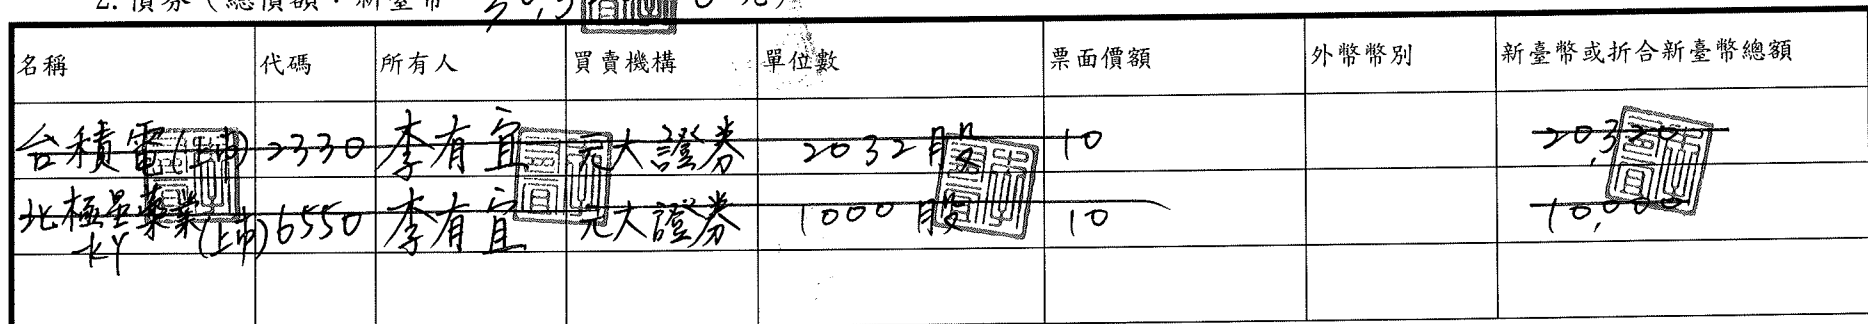 2. 債券（總價額：新臺幣 30,3 0 元）
名稱 代碼 所有人 買賣機構 單位數 票面價額 外幣幣別 新臺幣或折合新臺幣總額
台積電(上市) 2330 李有宜 元大證券 2032股 10 20,320
北極星藥業 6550 李有宜 元大證券 1000股 10 10,000
KY (上市)